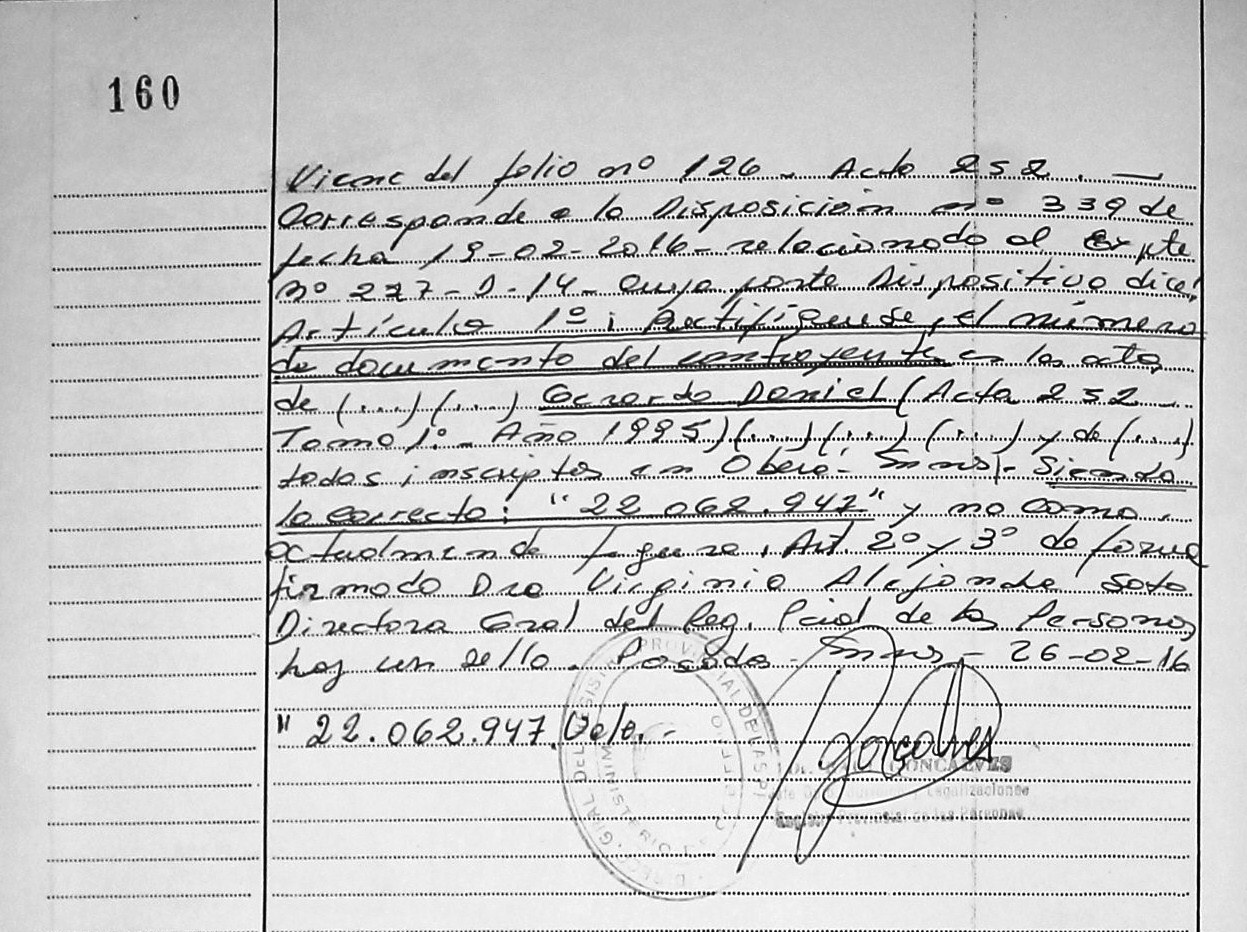 160
Viene del folio nº 126 - Acta 252. —
Corresponde a la Disposición nº 339 de
fecha 19-02-2016 - relacionado al Expte
Nº 227-D-14 - cuya parte Dispositiva dice:
Artículo 1º: Rectifíquese, el número
de documento del contrayente en las actas
de (...) (...) Gerardo Daniel (Acta 252 -
Tomo 1º - Año 1995) (...) (...) (...) y de (...)
todas inscriptas en Oberá - Mnes - Siendo
lo correcto: "22.062.947" y no como
actualmende figura. Art. 2º y 3º de forma
firmado Dra Virginia Alejandra Soto
Directora Gral del Reg. Pcial de las Personas,
hay un sello. Posadas - Mnes - 26-02-16
" 22.062.947. Vale. -
GONCALVES
Legalizaciones
Provincial de las Personas